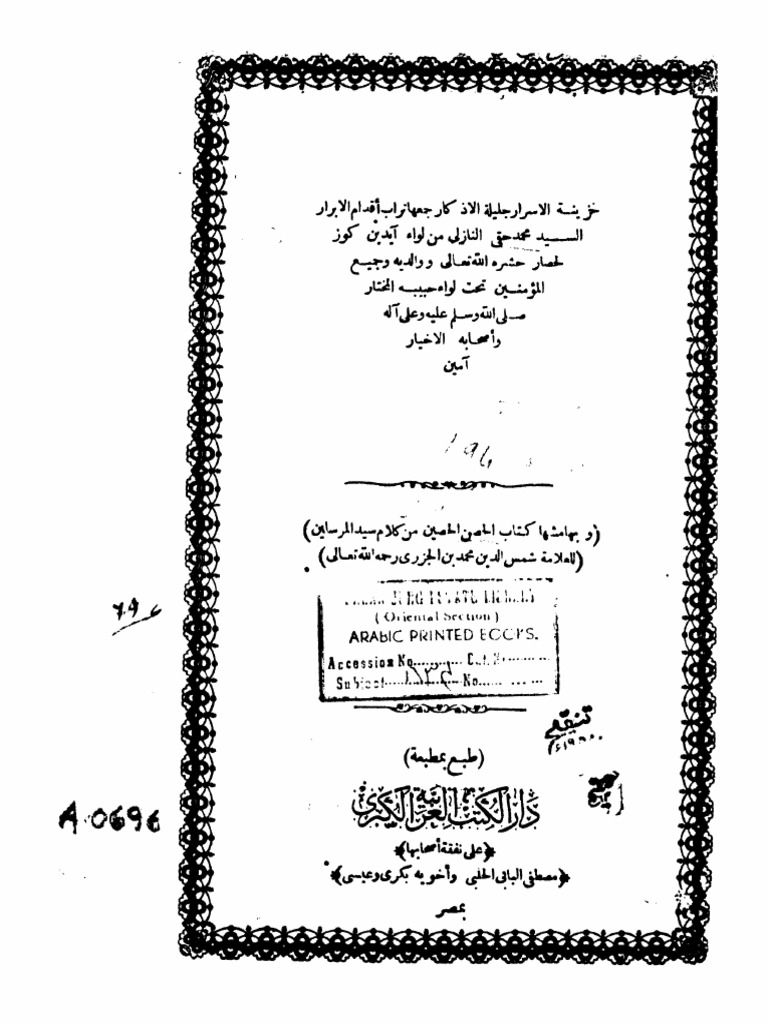 خزينة الاسرار جليلة الاذكار جمعها تراب أقدام الابرار
السيد محمد حقى النازلى من لواء آيدين كوز
لحصار حشره الله تعالى ووالديه وجميع
المؤمنين تحت لواء حبيبه المختار
صلى الله وسلم عليه وعلى آله
وأصحابه الاخيار
آمين
(وبهامشها كتاب الحصن الحصين من كلام سيد المرسلين)
(للعلامة شمس الدين محمد بن الجزرى رحمه الله تعالى)
(Oriental Section)
ARABIC PRINTED BOOKS.
Accession No......... Cat. No.........
Subject......... No.........
تنقيح
(طبع بمطبعة)
دار الكتب العربية الكبرى
﴿على نفقة أصحابها﴾
﴿مصطفى البابى الحلبى وأخويه بكرى وعيسى﴾
بمصر
A.0696